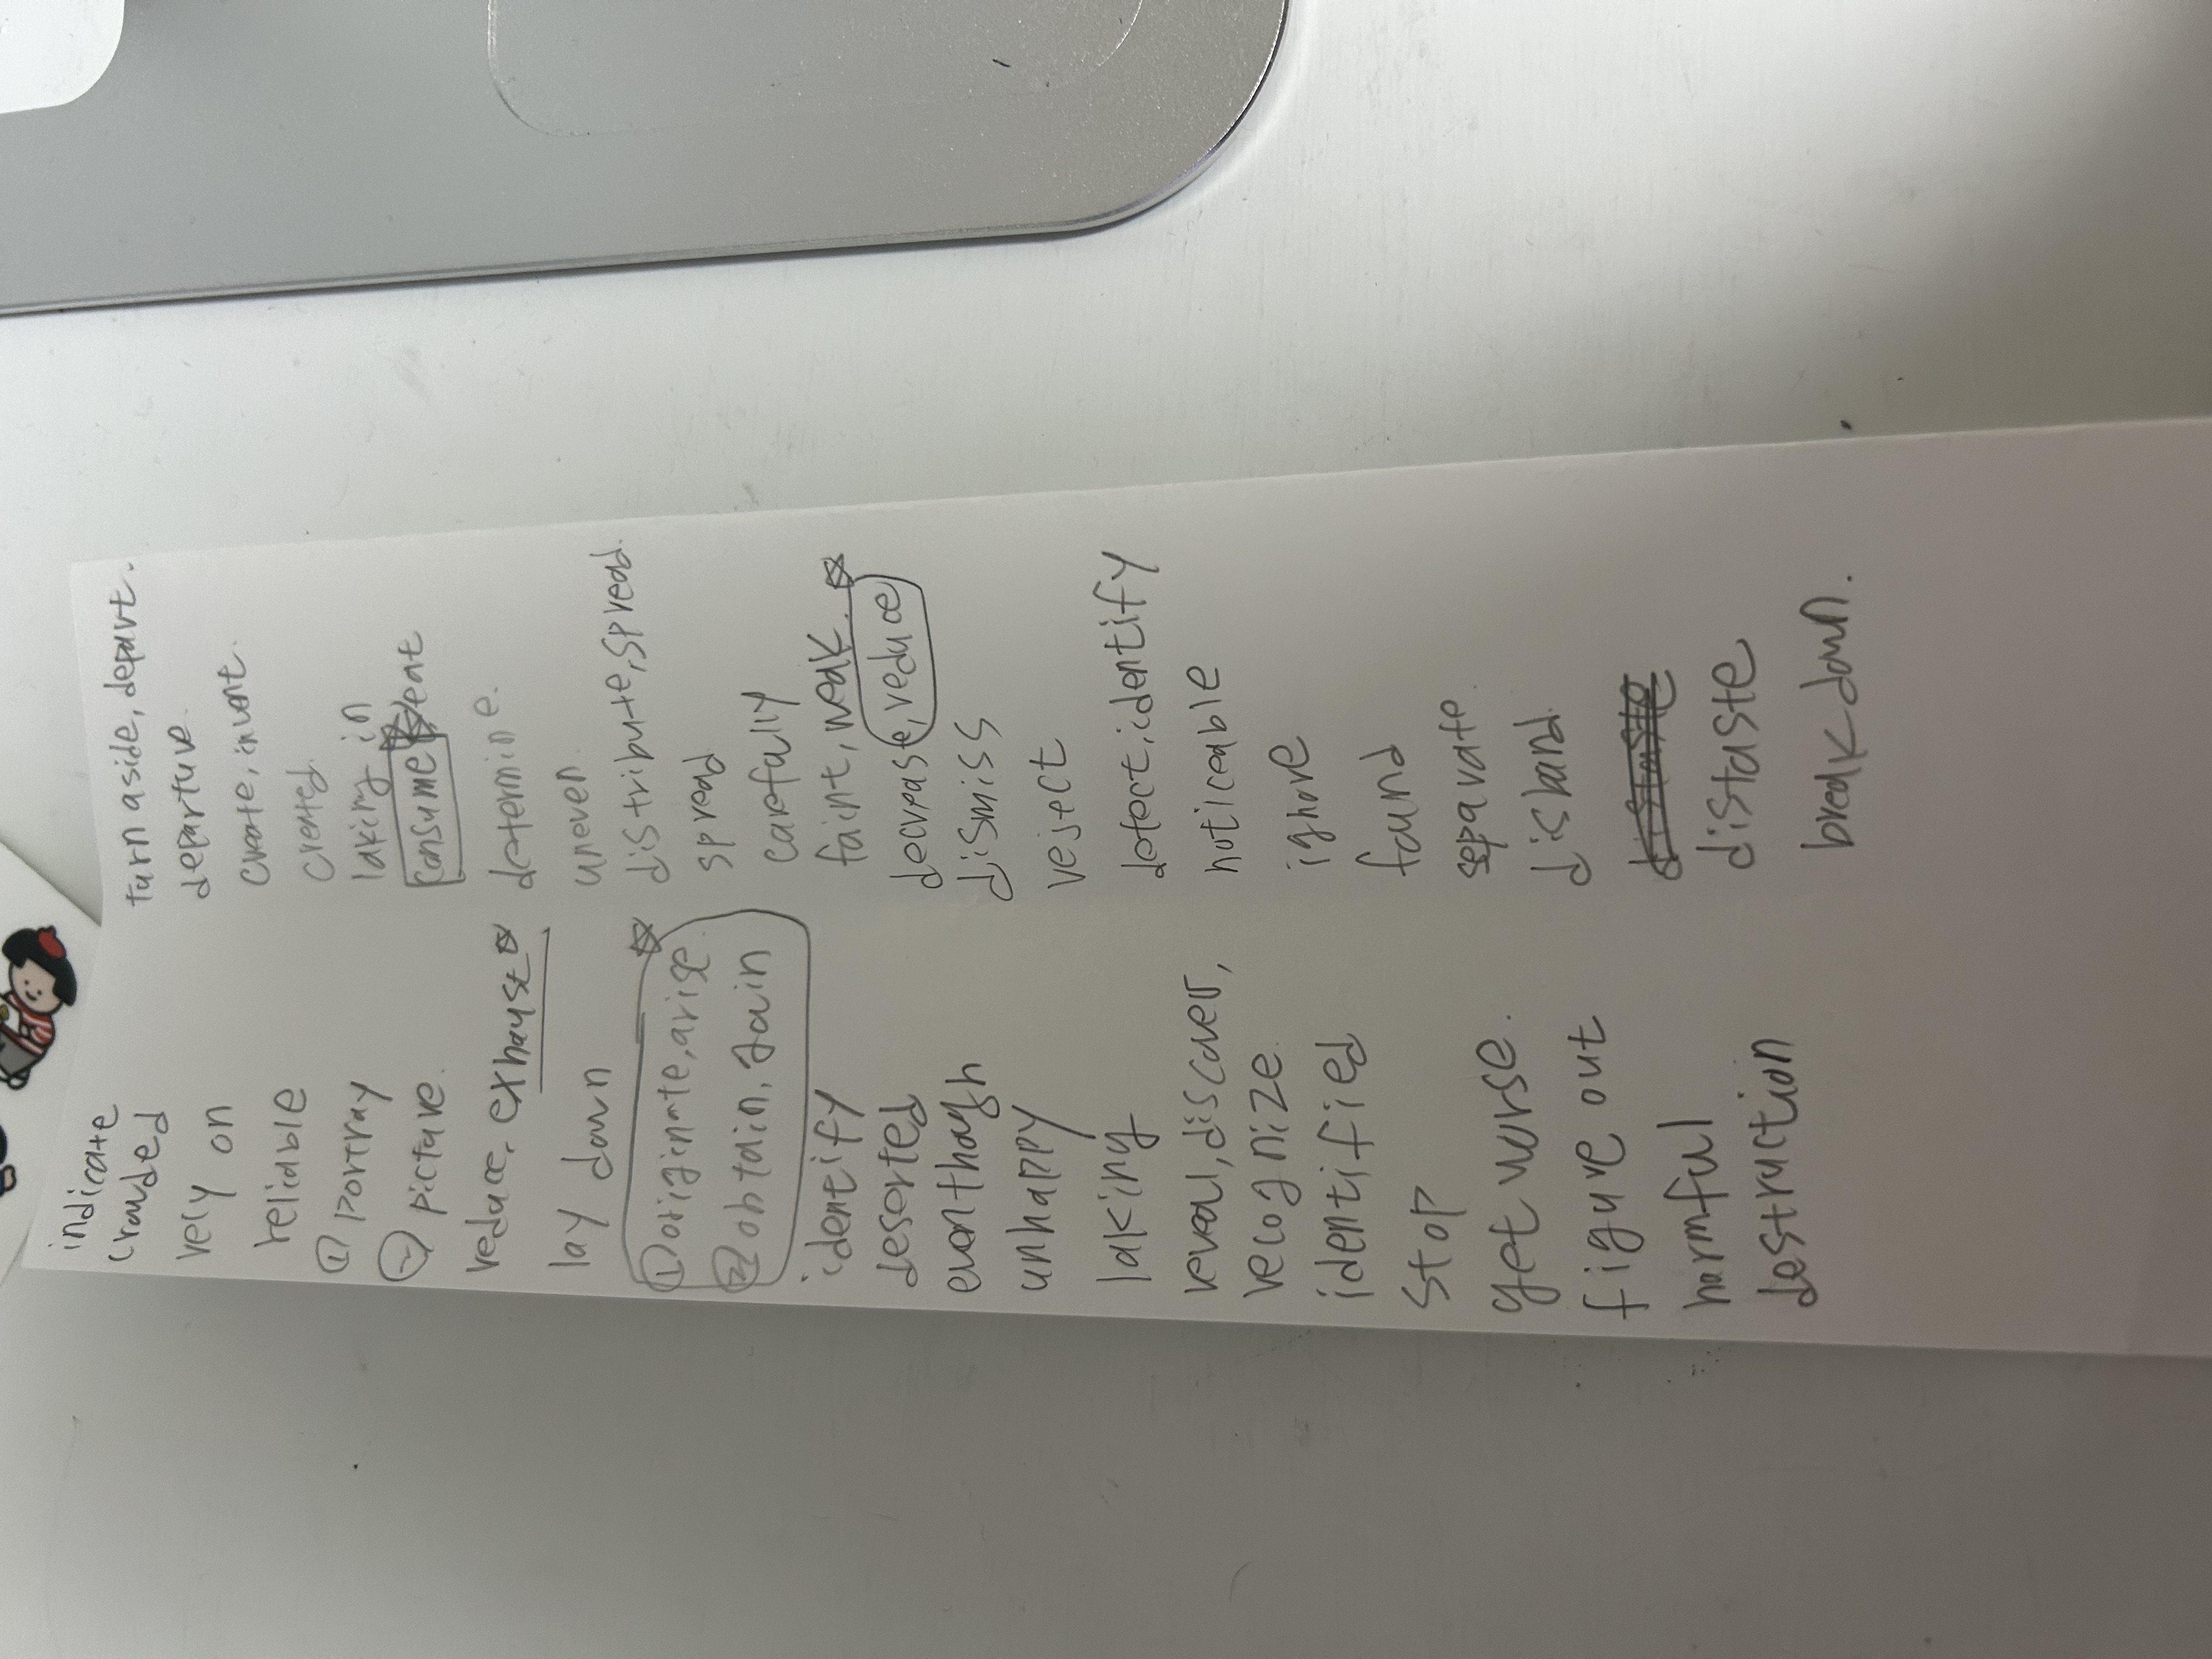 indicate
crowded
rely on
reliable
① portray
② picture.
reduce, exhaust ☆
lay down
① originate, arise. ☆
② obtain, gain
identify
deserted
eventhough
unhappy
laking
reveal, discover,
recognize.
identified
stop
get worse.
figure out
harmful
destruction
turn aside, depart.
departure.
create, invent.
created.
laking in
consume ☆ eat
determine.
uneven
distribute, spread.
spread
carefully
faint, weak. ☆
decrease, reduce
dismiss
reject
detect, identify
noticeable
ignore
found
separate.
disband.
distaste
break down.